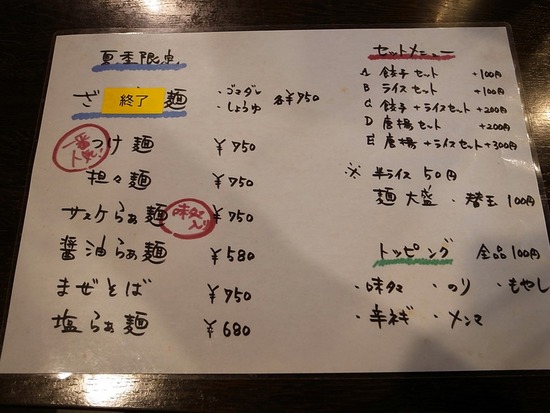 夏季限定
ざ 終了 麺 ・ゴマダレ ・しょうゆ 各¥750
一番人気 つけ麺 ¥750
担々麺 ¥750
サスケらぁ麺 味玉入り ¥750
醤油らぁ麺 ¥580
まぜそば ¥750
塩らぁ麺 ¥680
セットメニュー
A 餃子セット +100円
B ライスセット +100円
C 餃子+ライスセット +200円
D 唐揚セット +200円
E 唐揚+ライスセット +300円
※ 半ライス 50円
麺大盛・替玉 100円
トッピング 全品100円
・味玉 ・のり ・もやし
・辛ネギ ・メンマ